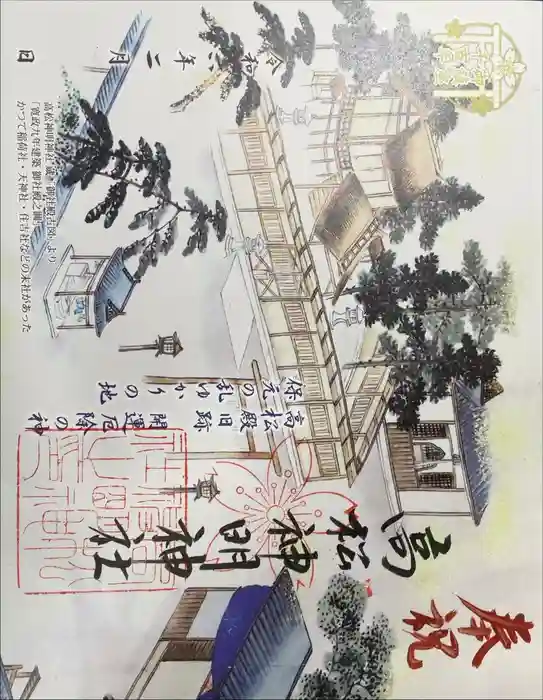 奉祝
高松神明神社
高松殿旧跡
保元の乱ゆかりの地
開運厄除の神
令和六年二月 日
高松神明神社 蔵『御社殿古図』より
「寛政九年建築 御社殿之圖」
かつて稲荷社・天神社・住吉社などの末社があった